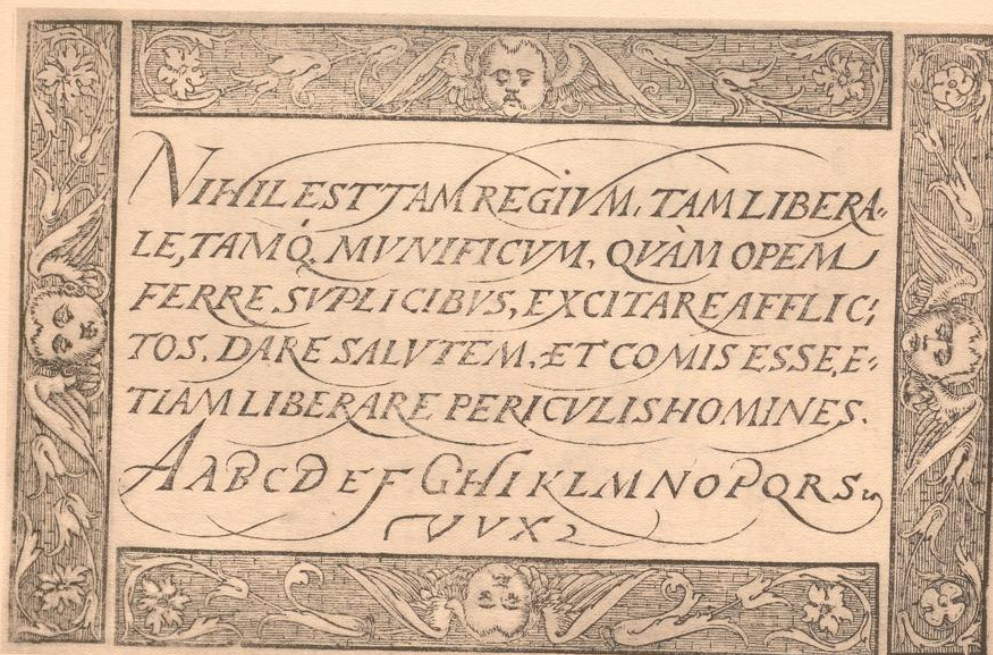 NIHIL EST TAM REGIVM, TAM LIBERA-
LE, TAMQ́. MVNIFICVM, QVÀM OPEM
FERRE SVPLICIBVS, EXCITARE AFFLIC-
TOS, DARE SALVTEM, ET COMIS ESSE, E-
TIAM LIBERARE PERICVLIS HOMINES.
A A B C D E F G H I K L M N O P Q R S
T V V X Z